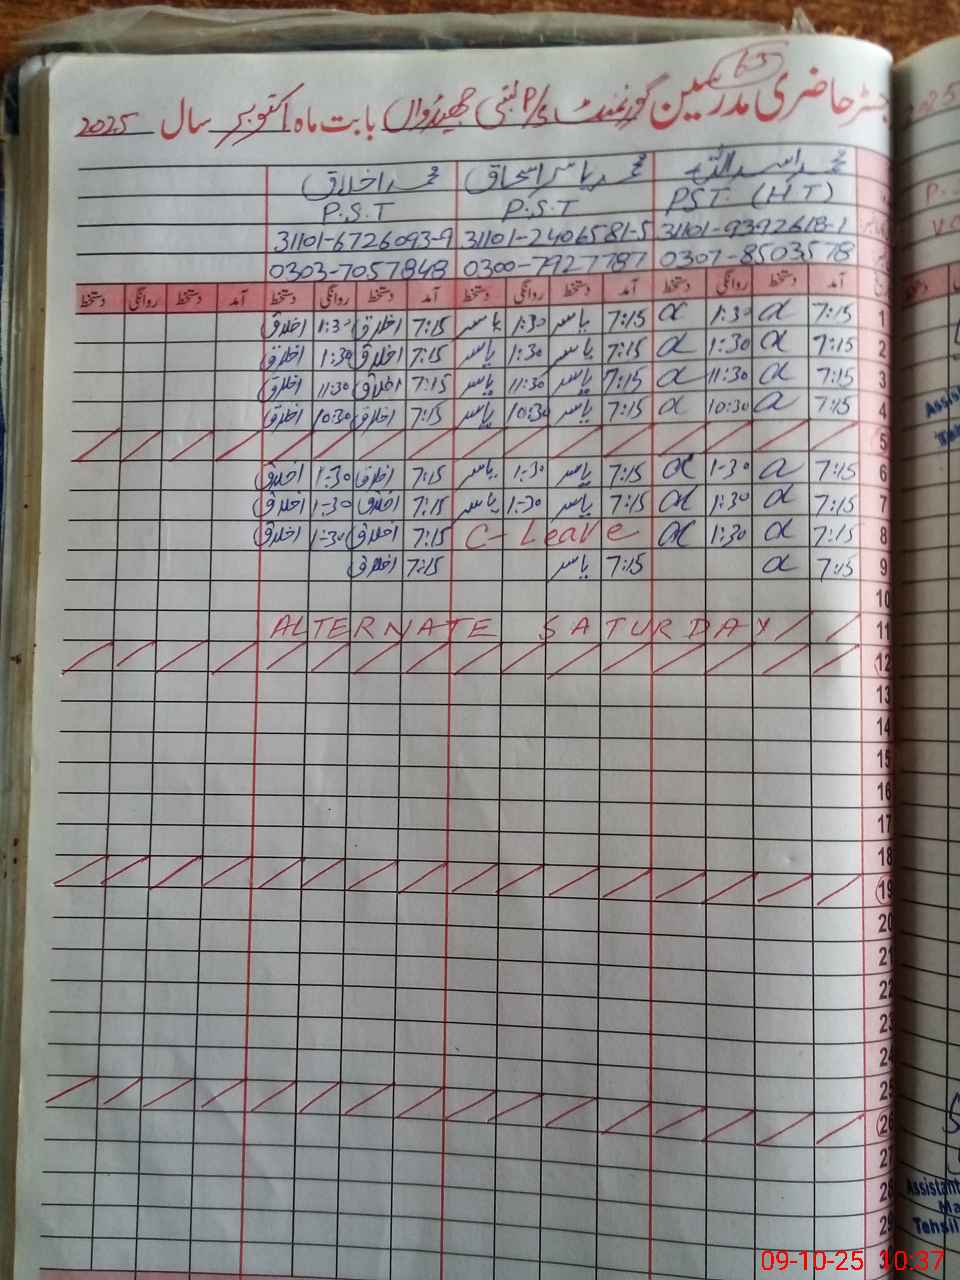 63
رجسٹر حاضری مدرسین گورنمنٹ P/S بستی بابت ماہ اکتوبر سال 2025
محمد اسد اللہ محمد یاسر اسحاق محمد اخلاق
PST (H.T) P.S.T P.S.T
31101-9392618-1 31101-2406581-5 31101-6726093-9
0307-8503578 0300-7927787 0303-7057848
آمد دستخط روانگی دستخط آمد دستخط روانگی دستخط آمد دستخط روانگی دستخط آمد دستخط روانگی دستخط
1 7:15 α 1:30 α 7:15 یاسر 1:30 یاسر 7:15 اخلاق 1:30 اخلاق
2 7:15 α 1:30 α 7:15 یاسر 1:30 یاسر 7:15 اخلاق 1:30 اخلاق
3 7:15 α 11:30 α 7:15 یاسر 11:30 یاسر 7:15 اخلاق 11:30 اخلاق
4 7:15 α 10:30 α 7:15 یاسر 10:30 یاسر 7:15 اخلاق 10:30 اخلاق
5
6 7:15 α 1-30 α 7:15 یاسر 1:30 یاسر 7:15 اخلاق 1:30 اخلاق
7 7:15 α 1:30 α 7:15 یاسر 1-30 یاسر 7:15 اخلاق 1-30 اخلاق
8 7:15 α 1:30 α C-Leave 7:15 اخلاق 1:30 اخلاق
9 7:15 α 7:15 یاسر 7:15 اخلاق
10
11 ALTERNATE SATURDAY
12
13
14
15
16
17
18
19
20
21
22
23
24
25
26
27
28
29
Assistant
Tehsil
09-10-25 10:37